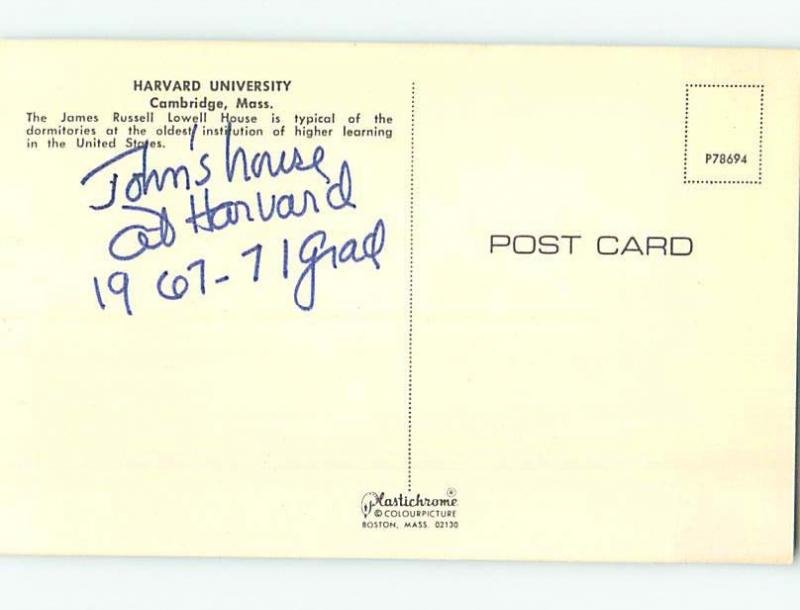 HARVARD UNIVERSITY
Cambridge, Mass.
The James Russell Lowell House is typical of the
dormitories at the oldest institution of higher learning
in the United States.
John's house
at Harvard
1967-71 grad
P78694
POST CARD
Plastichrome®
© COLOURPICTURE
BOSTON, MASS. 02130